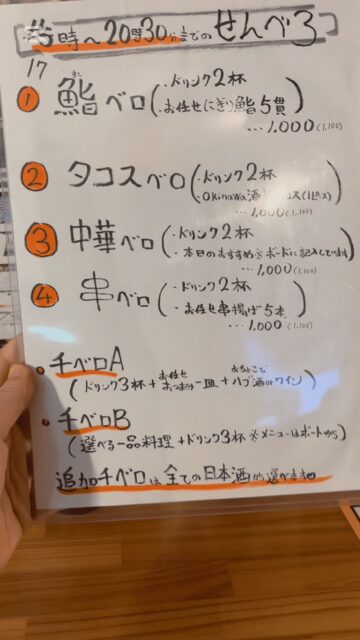 時〜20時30分までの せんべろ
17
① 鮨ベロ(・ドリンク2杯
すし
・お任せにぎり鮨5貫)
…1,000(1,100)
② タコスベロ(・ドリンク2杯
・Okinawa酒
…1,000(1,100)
③ 中華ベロ(・ドリンク2杯
・本日のおすすめ※ボードに記入しています)
…1,000(1,100)
④ 串ベロ(・ドリンク2杯
・お任せ串揚げ5本)
…1,000(1,100)
・千ベロA
お任せ おちょこで
(ドリンク3杯+おつまみ一皿+ハブ酒orワイン)
・千ベロB
(選べる一品料理+ドリンク3杯 ※メニューはボードから)
追加千ベロは全ての日本酒から選べます